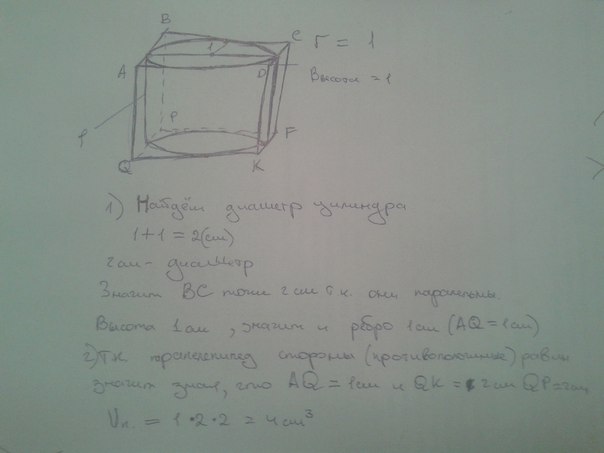 B
1
C
r = 1
A
D
Высота = 1
1
P
F
Q
K
1) Найдём диаметр цилиндра
1+1 = 2(см)
2 см - диаметр
Значит BC тоже 2 см т.к. они паралельны.
Высота 1 см, значит и ребро 1 см (AQ = 1 см)
2) Т.к. паралелепипед стороны (противоположные) равны
значит зная, что AQ = 1 см и QK = 2 см QP = 2 см
Vп. = 1 · 2 · 2 = 4 см³